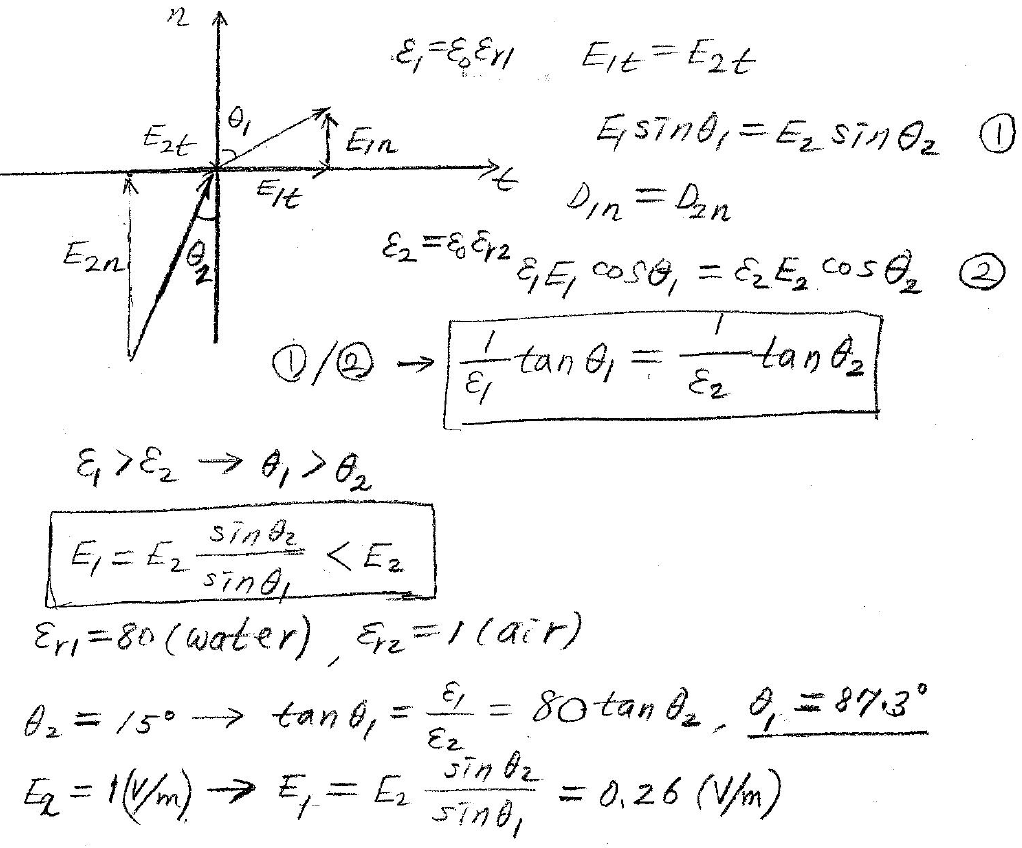 n
ε₁=ε₀εr1 E₁t=E₂t
θ₁
E₂t E₁n E₁sinθ₁=E₂ sinθ₂ ①
E₁t t
D₁n=D₂n
E₂n θ₂ ε₂=ε₀εr2
ε₁E₁ cosθ₁ = ε₂E₂ cosθ₂ ②
①/② → 1/ε₁ tanθ₁ = 1/ε₂ tanθ₂
ε₁>ε₂ → θ₁>θ₂
E₁=E₂ sinθ₂/sinθ₁ <E₂
εr1=80(water), εr2=1(air)
θ₂=15° → tanθ₁= ε₁/ε₂ = 80tanθ₂, θ₁=87.3°
E₂=1(V/m) → E₁=E₂ sinθ₂/sinθ₁ = 0.26 (V/m)